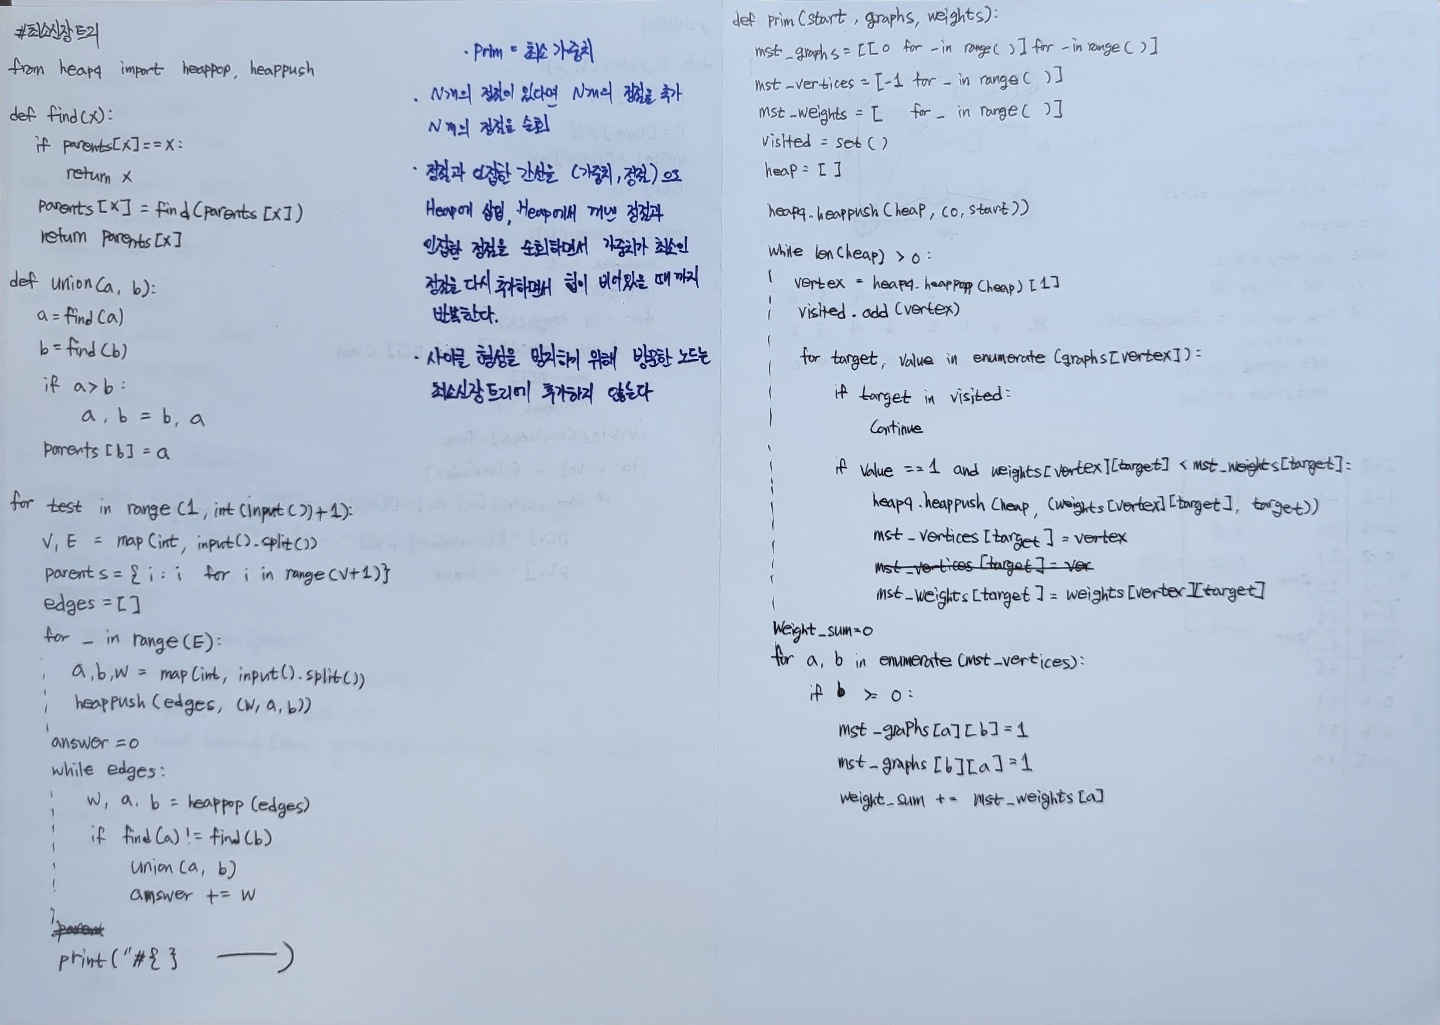 #최소신장트리
from heapq import heappop, heappush
def find(x):
if parents[x]==x:
return x
parents[x] = find(parents[x])
return parents[x]
def union(a, b):
a=find(a)
b=find(b)
if a>b:
a, b = b, a
parents[b]=a
for test in range(1, int(input())+1):
V, E = map(int, input().split())
parents={i:i for i in range(V+1)}
edges=[]
for _ in range(E):
a,b,w = map(int, input().split())
heappush(edges, (w, a, b))
answer=0
while edges:
w, a, b = heappop(edges)
if find(a)!=find(b)
union(a, b)
amswer += w
parent
print("#{}            )
· Prim = 최소 가중치
· N개의 정점이 있다면 N개의 정점을 추가
N개의 정점을 순회
· 정점과 인접한 간선을 (가중치, 정점)으로
Heap에 삽입, Heap에서 꺼낸 정점과
인접한 정점을 순회하면서 가중치가 최소인
정점을 다시 추가하면서 힙이 비어있을 때 까지
반복한다.
· 사이클 형성을 방지하기 위해 방문한 노드는
최소신장트리에 추가하지 않는다
def prim(start, graphs, weights):
mst_graphs=[[0 for - in range( )] for - in range( )]
mst_vertices=[-1 for _ in range( )]
mst_weights=[    for _ in range( )]
visited = set()
heap=[ ]
heapq.heappush(heap, (0, start))
while len(heap) > 0:
vertex = heapq.heappop(heap)[1]
visited.add(vertex)
for target, value in enumerate(graphs[vertex]):
if target in visited:
Continue
if value ==1 and weights[vertex][target] < mst_weights[target]:
heapq.heappush(heap, (weights[vertex][target], target))
mst_vertices[target]=vertex
mst_vertices[target]=ver
mst_weights[target]=weights[vertex][target]
Weight_sum=0
for a, b in enumerate(mst_vertices):
if b >= 0:
mst_graphs[a][b]=1
mst_graphs[b][a]=1
weight_sum += mst_weights[a]